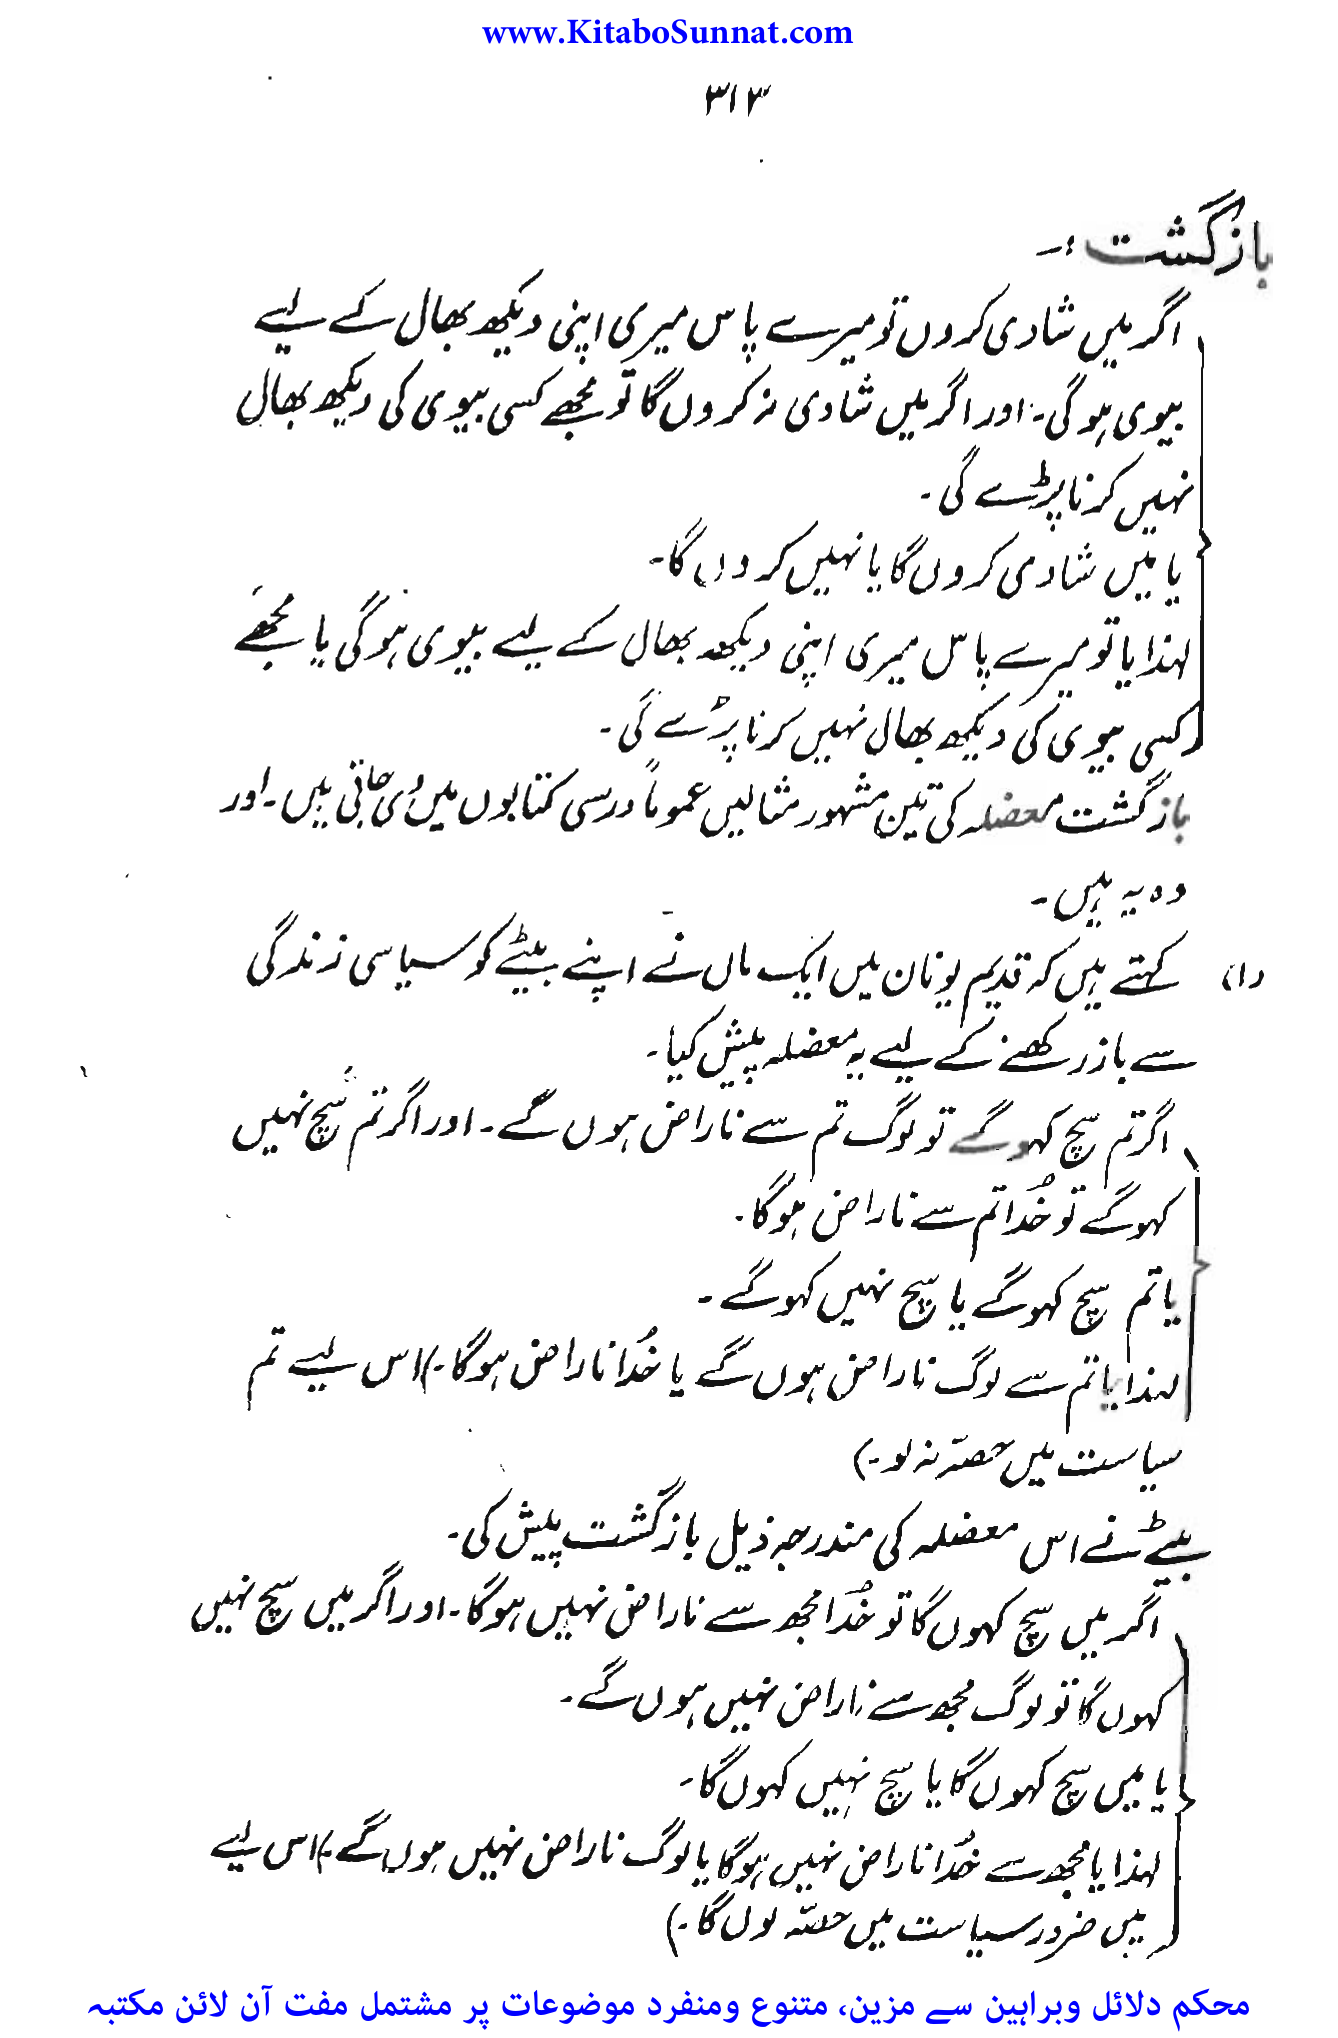 www.KitaboSunnat.com
۳۱۳
بازگشت :۔
اگر میں شادی کروں تو میرے پاس میری اپنی دیکھ بھال کے لیے
بیوی ہو گی۔ اور اگر میں شادی نہ کروں گا تو مجھے کسی بیوی کی دیکھ بھال
نہیں کرنا پڑے گی۔
یا میں شادی کروں گا یا نہیں کروں گا۔
لہذا یا تو میرے پاس میری اپنی دیکھ بھال کے لیے بیوی ہو گی یا مجھے
کسی بیوی کی دیکھ بھال نہیں کرنا پڑے گی۔
بازگشت معضلہ کی تین مشہور مثالیں عموماً درسی کتابوں میں دی جاتی ہیں۔ اور
وہ یہ ہیں۔
(۱) کہتے ہیں کہ قدیم یونان میں ایک ماں نے اپنے بیٹے کو سیاسی زندگی
سے باز رکھنے کے لیے یہ معضلہ پیش کیا۔
اگر تم سچ کہو گے تو لوگ تم سے ناراض ہوں گے۔ اور اگر تم سچ نہیں
کہو گے تو خُدا تم سے ناراض ہو گا۔
یا تم سچ کہو گے یا سچ نہیں کہو گے۔
لہذا یا تم سے لوگ ناراض ہوں گے یا خُدا ناراض ہو گا۔)اس لیے تم
سیاست میں حصّہ نہ لو۔)
بیٹے نے اس معضلہ کی مندرجہ ذیل بازگشت پیش کی۔
اگر میں سچ کہوں گا تو خُدا مجھ سے ناراض نہیں ہو گا۔ اور اگر میں سچ نہیں
کہوں گا تو لوگ مجھ سے ناراض نہیں ہوں گے۔
یا میں سچ کہوں گا یا سچ نہیں کہوں گا۔
لہذا یا مجھ سے خُدا ناراض نہیں ہو گا یا لوگ ناراض نہیں ہوں گے۔)اس لیے
میں ضرور سیاست میں حصّہ لوں گا۔)
محکم دلائل وبراہین سے مزین، متنوع ومنفرد موضوعات پر مشتمل مفت آن لائن مکتبہ